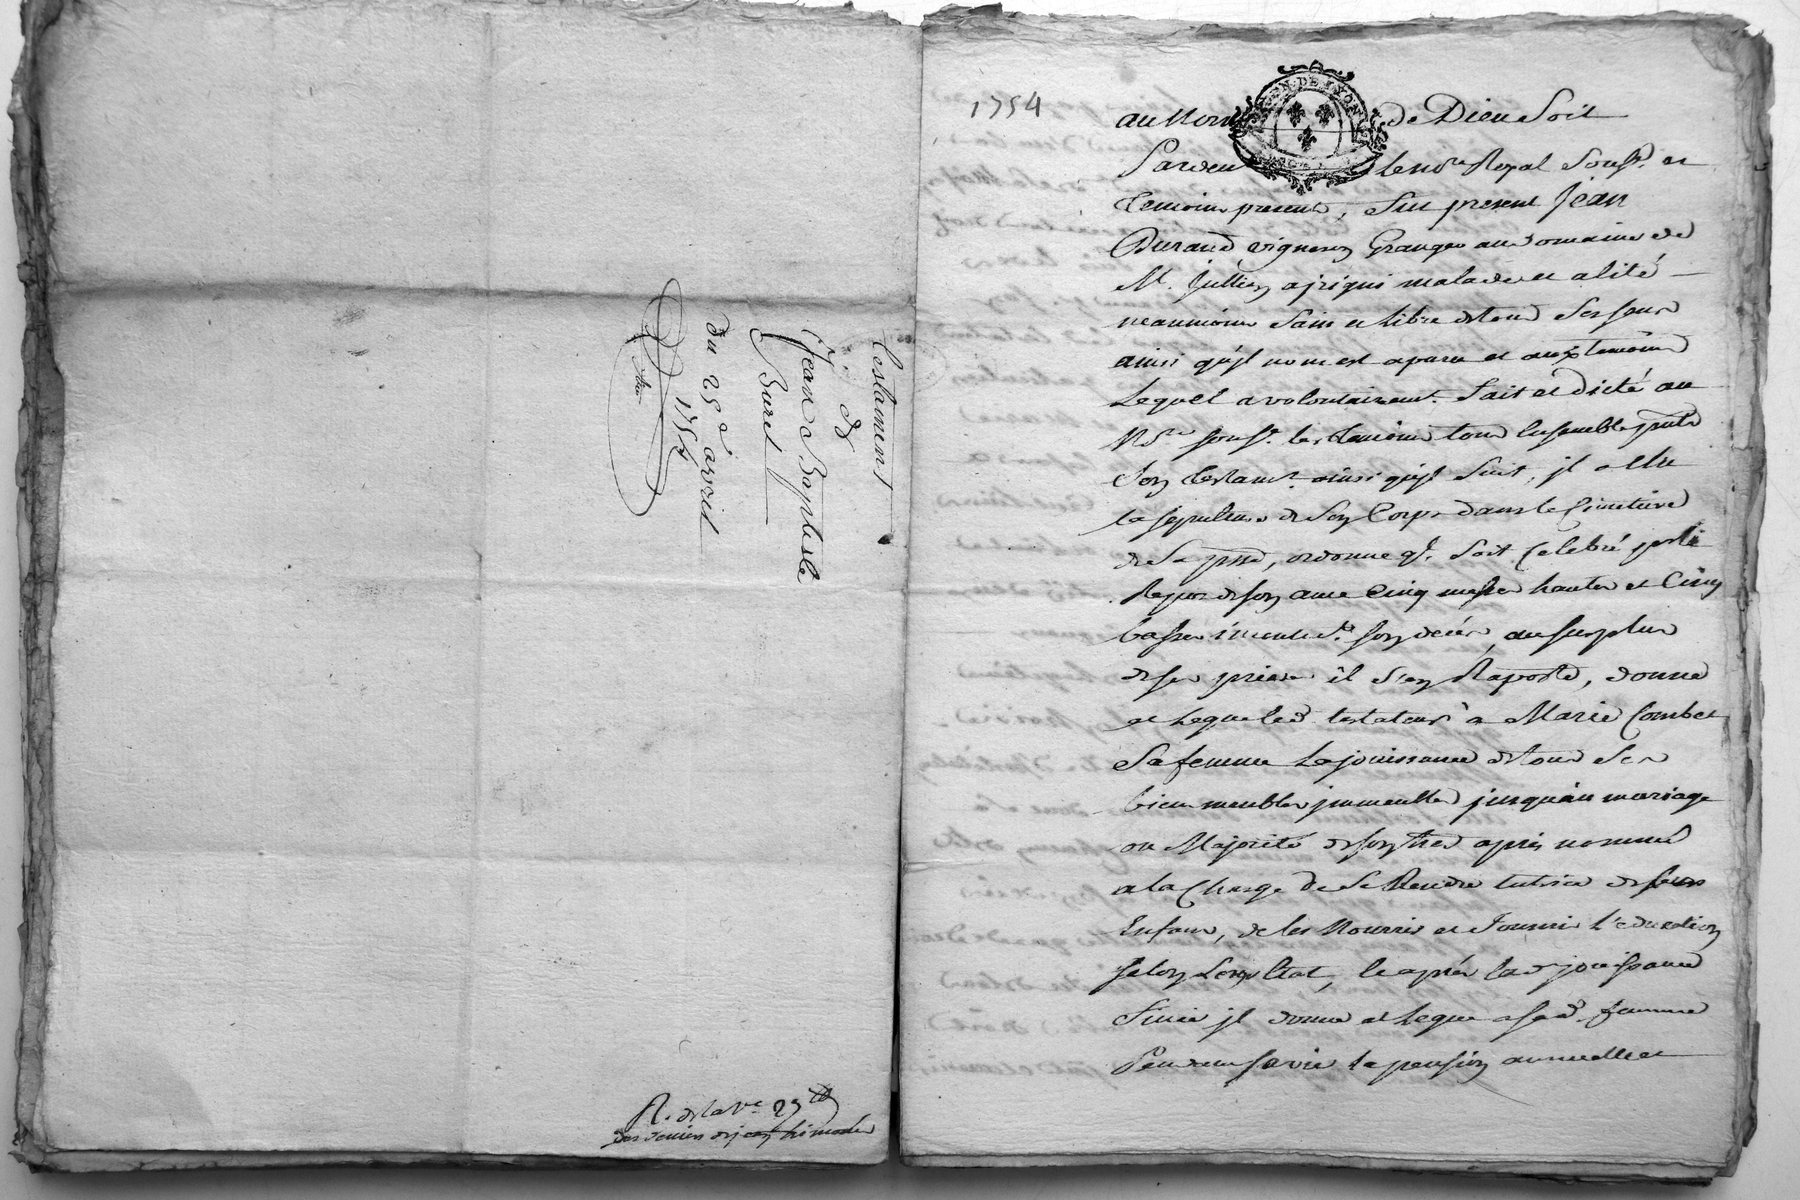 Testament
de
Jean Baptiste
Buret
du 25 avril
1754
R. de la Ve 25
1754
GEN. DE LYON
au Nom de Dieu Soit
Pardevt le nore Royal Soussé. et
temoins presents, fut present Jean
Durand vigneron Granger au domaine de
Mr. Jullien malade et alité
neanmoins Sain et libre de tous Ses sens
ainsi qu'jl nous est aparu et aux temoins
Lequel a volontairemt. fait et dicté au
Nre sousé. les temoins tous Ensemble pnts
Son Testamt. ainsi qu'jl Suit, jl a Elu
la sepulture de Son Corps dans le Cimetiere
de Sa psse, ordonne ql. Soit Celebré pr le
Repos de son ame Cinq messes hautes et Cinq
basses son deces, au surplus
de ses prieres il S'en Raporte, donne
et Legue led testateur à Marie Combet
Sa femme La jouissance de tous Ses
biens meubles jmmeubles jusqu'au mariage
ou Majorité de son hred après nommé
a la Charge de Se Rendre tutrice de leurs
Enfans, de les Nourrir et fournir l'education
selon Leur Etat, et après lad jouissance
finie jl donne et Legue a sad. femme
Pendant sa vie la pension annuelle et